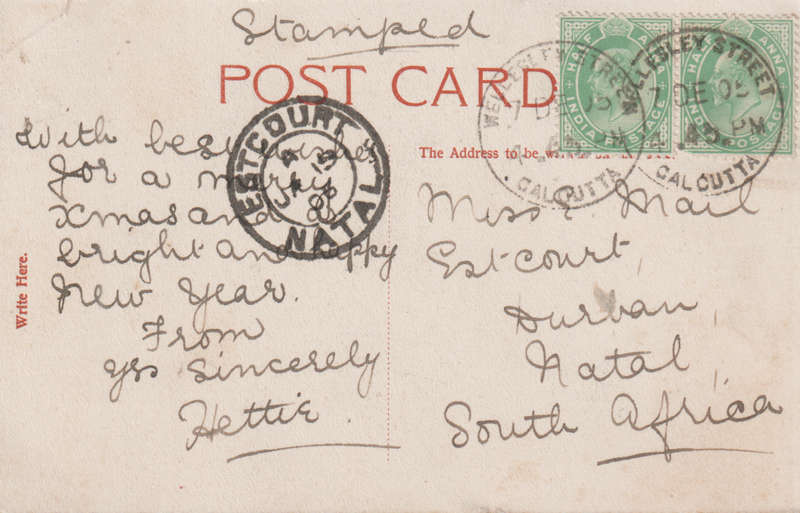 Stamped
POST CARD
HALF ANNA
INDIA POSTAGE
HALF ANNA
INDIA POSTAGE
WELLESLEY STREET
7 DE 05
CALCUTTA
WELLESLEY STREET
7 DE 05
.45 PM
CALCUTTA
ESTCOURT
JA 15
NATAL
The Address to be
With best wishes
for a merry
Xmas and a
bright and happy
New Year.
From
yrs sincerely
Hettie.
Write Here.
Miss Mail
Estcourt,
Durban,
Natal,
South Africa